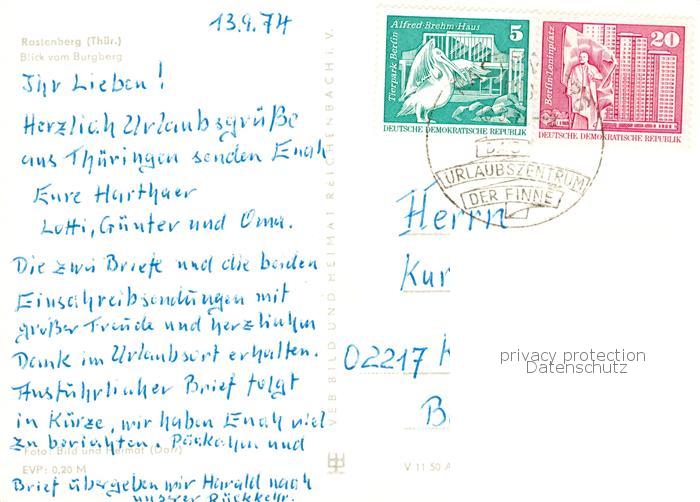 13.9.74
Rastenberg (Thür.)
Blick vom Burgberg
Ihr Lieben!
Herzlich Urlaubsgrüße
aus Thüringen senden Euch
Eure Harthaer
Lotti, Günter und Oma.
Die zwei Briefe und die beiden
Einschreibsendungen mit
großer Freude und herzlichem
Dank im Urlaubsort erhalten.
Ausführlicher Brief folgt
in Kürze, wir haben Euch viel
zu berichten. Päckchen und
Foto: Bild und Heimat (Dörr)
EVP: 0,20 M
Brief übergeben wir Harald nach
unserer Rückkehr.
VEB BILD UND HEIMAT REICHENBACH i. V.
Tierpark Berlin
Alfred-Brehm-Haus
5
DEUTSCHE DEMOKRATISCHE REPUBLIK
Berlin-Leninplatz
20
DEUTSCHE DEMOKRATISCHE REPUBLIK
URLAUBSZENTRUM
DER FINNE
Herrn
Kur
02217 K
B
privacy protection
Datenschutz
V 11 50 A